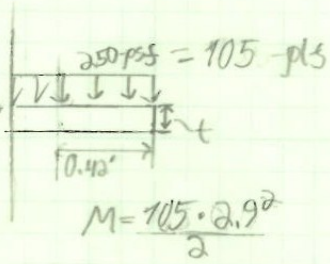 250 psf = 105 pls
t
0.42'
M = 105 · 2.9² / 2